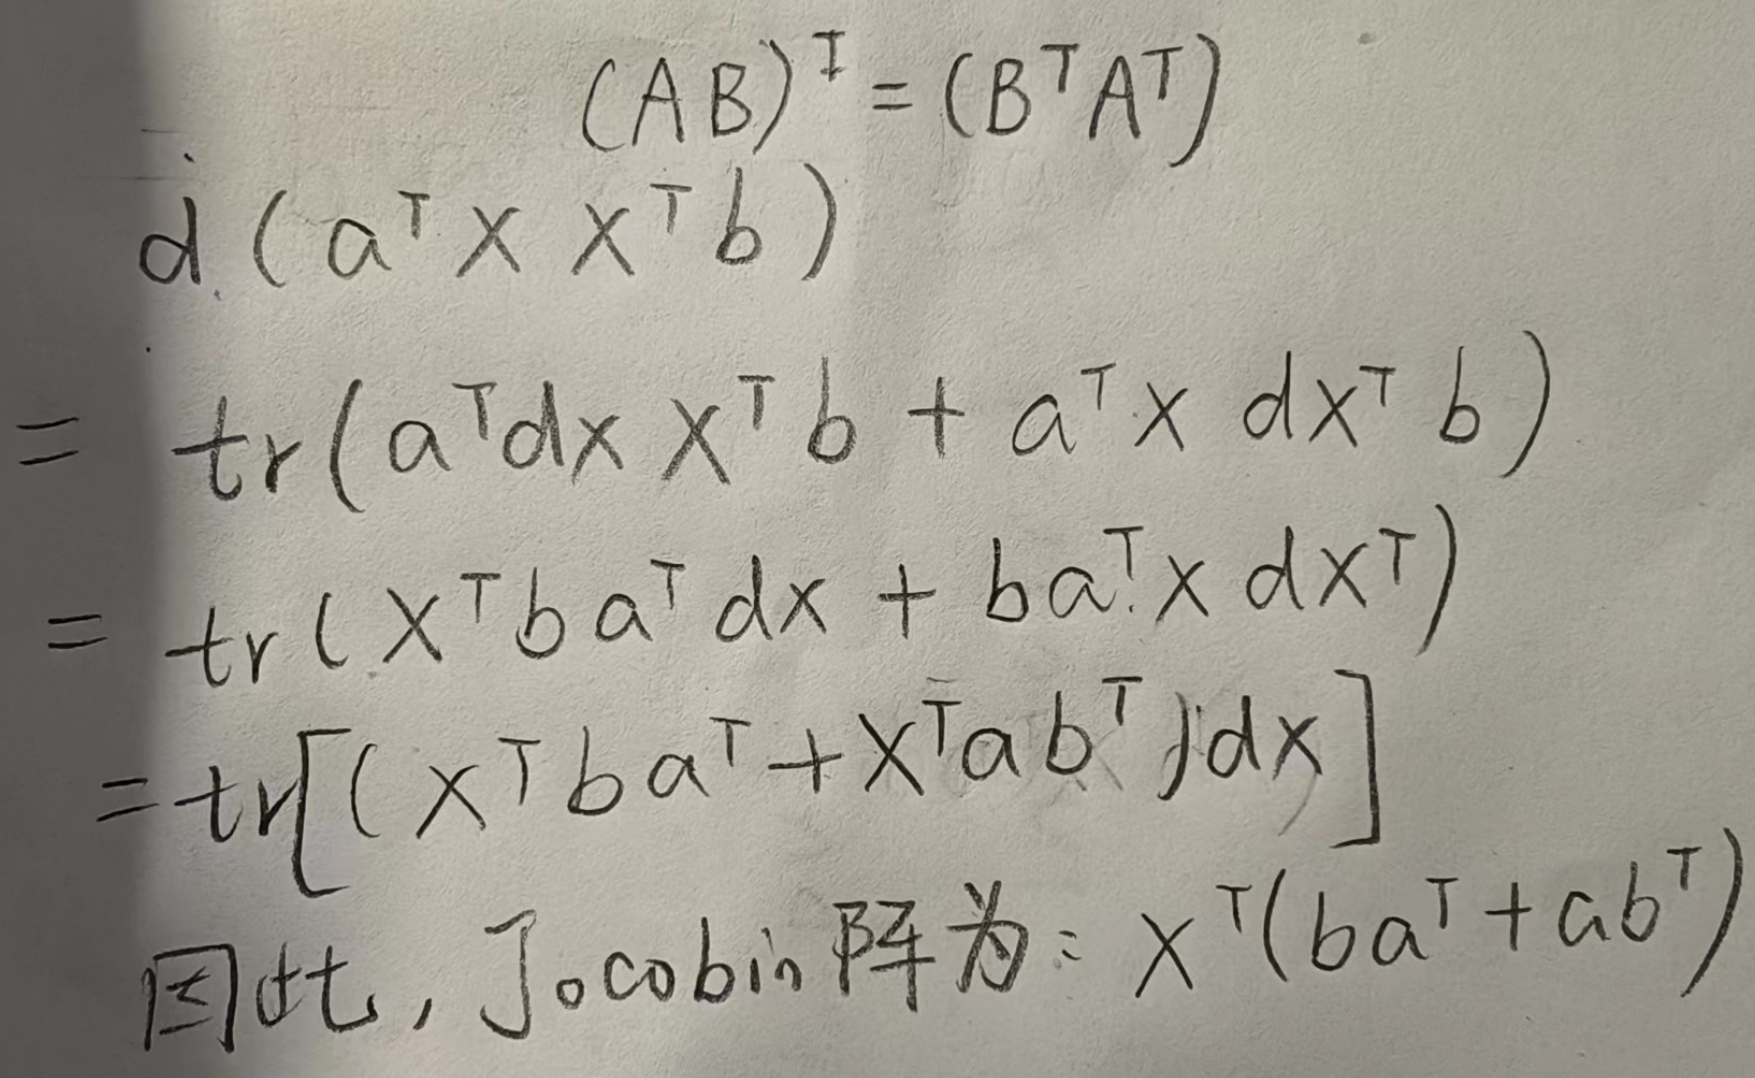 (AB)ᵀ = (BᵀAᵀ)
d(aᵀX Xᵀb)
= tr(aᵀdx Xᵀb + aᵀx dxᵀ b)
= tr(Xᵀbaᵀdx + baᵀx dxᵀ)
= tr[(Xᵀbaᵀ + Xᵀabᵀ)dx]
因此, Jocobin阵为: Xᵀ(baᵀ + abᵀ)